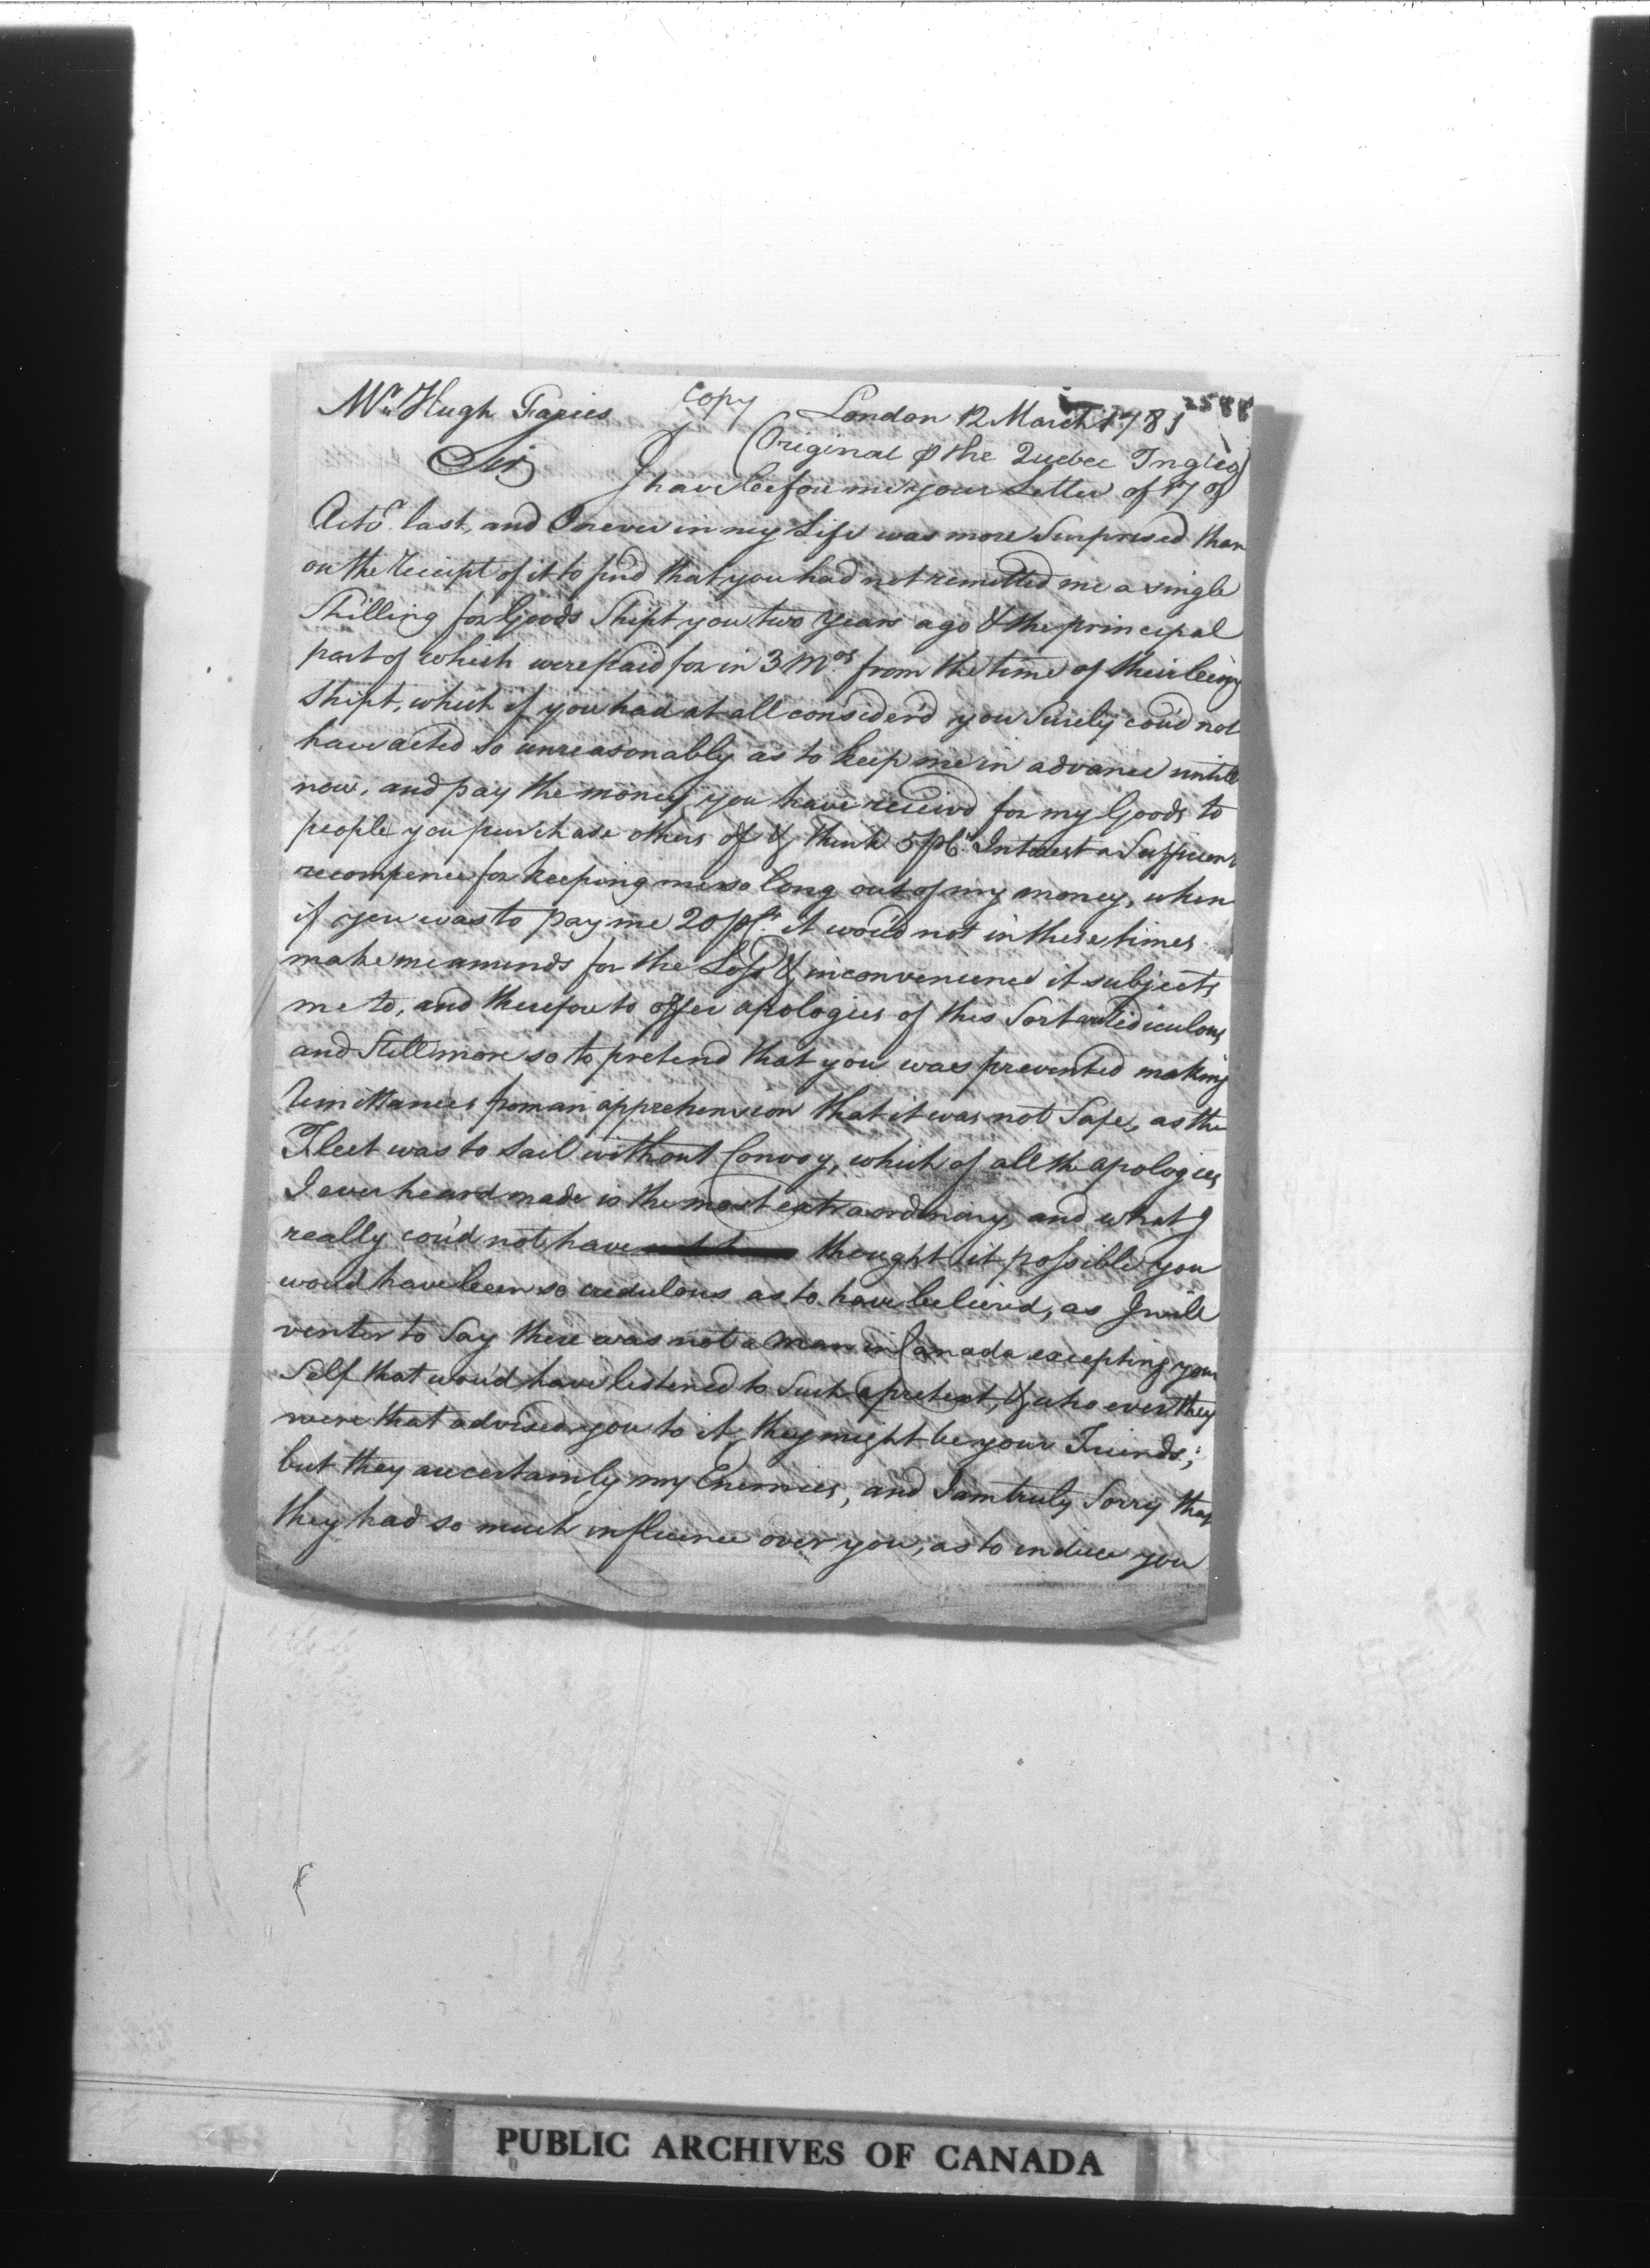 2588
Mr. Hugh Faries copy London 12 March 1781
(Original ⅌ the Quebec Inglis)
Sir I have before me your Letter of 17 of
Octor. last, and I never in my Life was more Surprised than
on the receipt of it to find that you had not remitted me a single
Shilling for Goods Shipt you two years ago & the principal
part of which were paid for in 3 Mos. from the time of their being
Shipt, which if you had at all consider'd you Surely cou'd not
have acted so unreasonably as to keep me in advance untill
now, and pay the money you have receivd for my Goods to
people you purchase others of & think 5 ⅌Ct. Interest a Sufficient
recompence for keeping me so long out of my money, when
if you was to pay me 20 ⅌Ct. it wou'd not in these times
make me amends for the Loss & inconvenience it subjects
me to, and therefore to offer apologies of this Sort is ridiculous
and Still more so to pretend that you was prevented making
remittances from an apprehension that it was not Safe, as the
Fleet was to sail without Convoy, which of all the apologies
I ever heard made is the most extraordinary, and what I
really cou'd not have thought it possible you
woud have been so credulous as to have believed, as I will
venter to Say there was not a man in Canada excepting your
Self that wou'd have listened to Such a pretext, & who ever they
were that advised you to it, they might be your Friends;
but they are certainly my Enemies, and I am truly Sorry that
they had so much influence over you, as to induce you
PUBLIC ARCHIVES OF CANADA